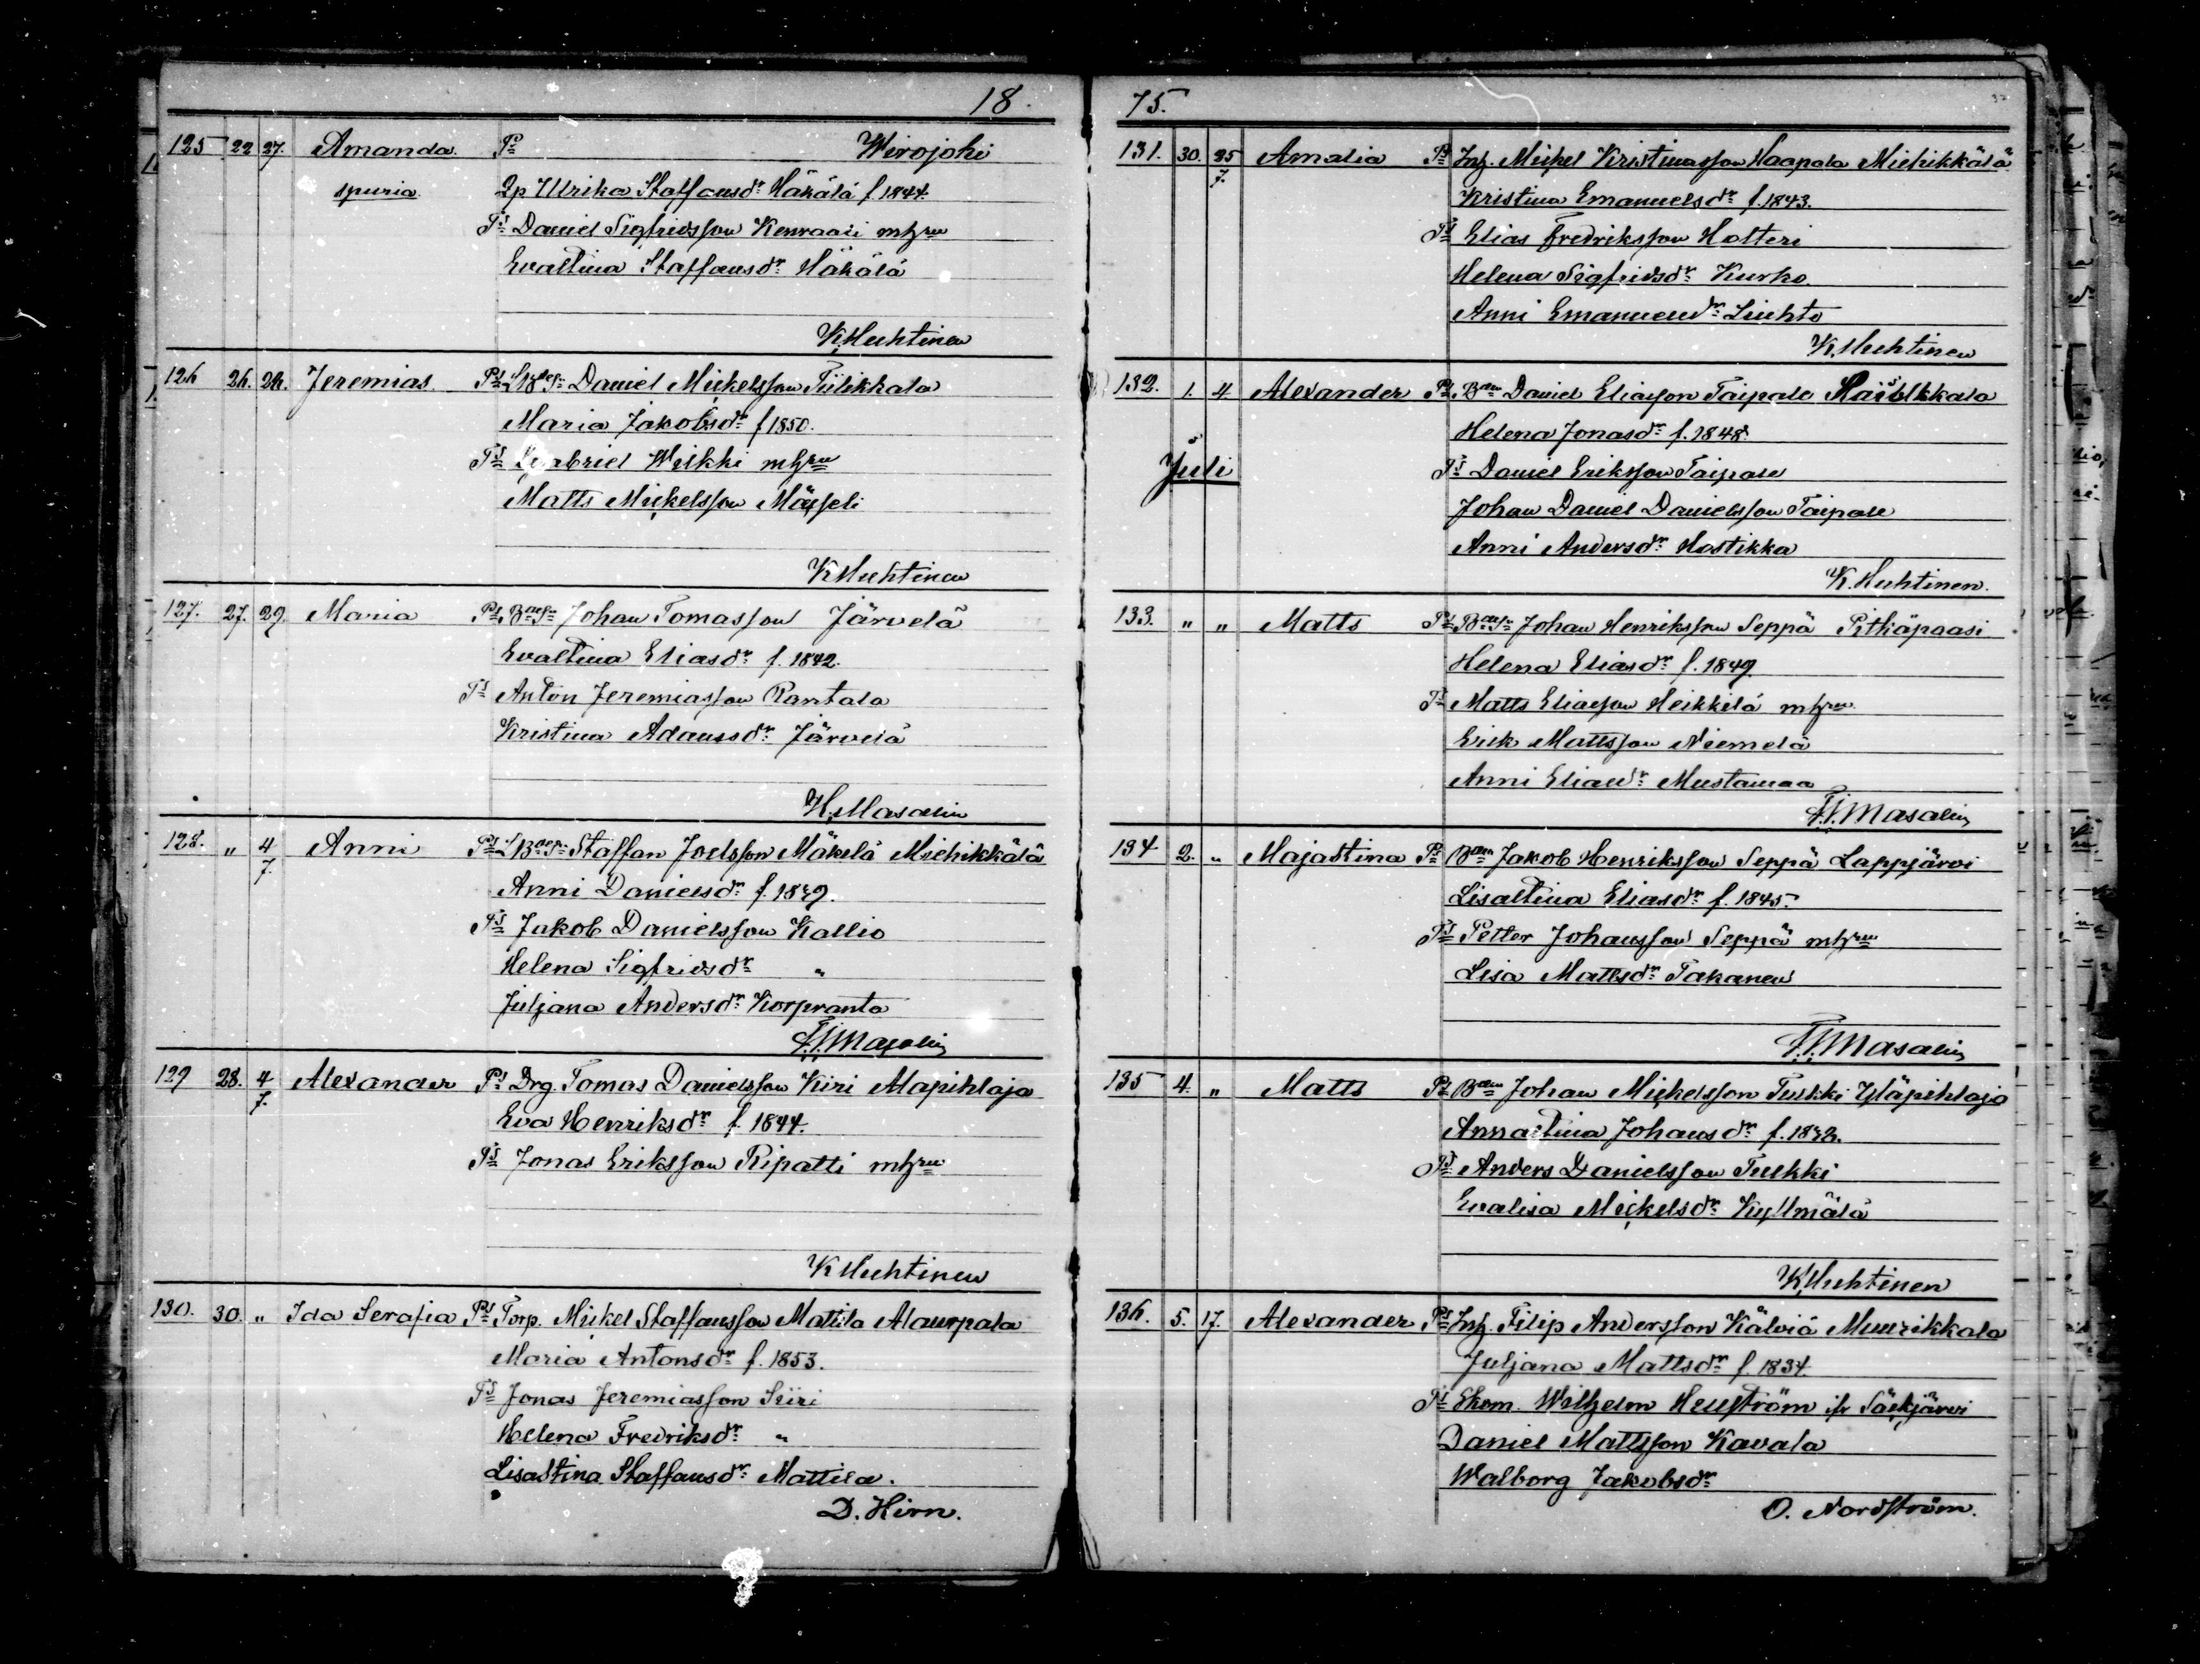 18.
125 22 27. Amanda. Ps Wirojoki
spuria. Qp Ulrika Staffansdr Häkälä f. 1844.
Ts Daniel Sigfridsson Kenraali mhru
Evastina Staffansdr Häkälä
K. Huhtinen
126 26. 26. Jeremias. Ps Daniel Mickelsson Tiilikkala
Maria Jakobsdr f 1850.
Ts Gabriel Wilkki mhru
Matts Mickelsson
K. Huhtinen
127. 27. 29. Maria Ps Johan Tomasson Järvelä
Evastina Eliasdr f. 1842.
Ts Anton Jeremiasson Rantala
Kristina Adamsdr Järvelä
H. Masalin
128. " 4/7. Anni Ps Staffan Joelsson Mäkelä Miehikkälä
Anni Danielsdr f. 1849.
Ts Jakob Danielsson Kallio
Helena Sigfridsdr "
Juljana Andersdr Korpranta
Masalin
129 28. 4/7. Alexander Ps Drg. Tomas Danielsson Kiri Alapihlaja
Eva Henriksdr f. 1844.
Ts Jonas Eriksson Ripatti mhru
K. Huhtinen
130. 30. " Ida Serafia Ps Torp. Mickel Staffansson Mattila Alaurpala
Maria Antonsdr f. 1853.
Ts Jonas Jeremiasson Siiri
Helena Fredriksdr "
Lisastina Staffansdr Mattila.
D. Hirn.
75.
131. 30. 25/7. Amalia Ps Inh. Mickel Kristiansson Haapala Miehikkälä
Kristina Emanuelsdr f. 1843.
Ts Elias Fredriksson Holteri
Helena Sigfridsdr Kurko.
Anni Emanuelsdr Liuhto
K. Huhtinen
132. 1. 4 Alexander Ps Bon Daniel Eliasson Taipale
Helena Jonasdr f. 1848.
Juli Ts Daniel Eriksson Taipale
Johan Daniel Danielsson Taipale
Anni Andersdr Hostikka
K. Huhtinen.
133. " " Matts Ps Johan Henriksson Seppä Pitkäpaasi
Helena Eliasdr f. 1849.
Ts Matts Eliasson Heikkilä mhru
Erik Mattsson Niemelä
Anni Eliasdr Mustamaa
Masalin
134 2. " Majastina Ps Bon Jakob Henriksson Seppä Lappjärvi
Lisastina Eliasdr f. 1845.
Ts Petter Johansson Seppä mhru
Lisa Mattsdr Takanen
Masalin
135 4. " Matts Ps Bon Johan Mickelsson Tulkki Yläpihlaja
Annastina Johansdr f. 1832.
Ts Anders Danielsson Tulkki
Evalisa Mickelsdr Kyllmälä
K. Huhtinen
136. 5. 17. Alexander Ps Inh. Filip Andersson Kälviä Muurikkala
Juljana Mattsdr f. 1834.
Ts Ekom. Wilhelm Hellström ifr Säckjärvi
Daniel Mattsson Kavala
Walborg Jakobsdr
O. Nordström.